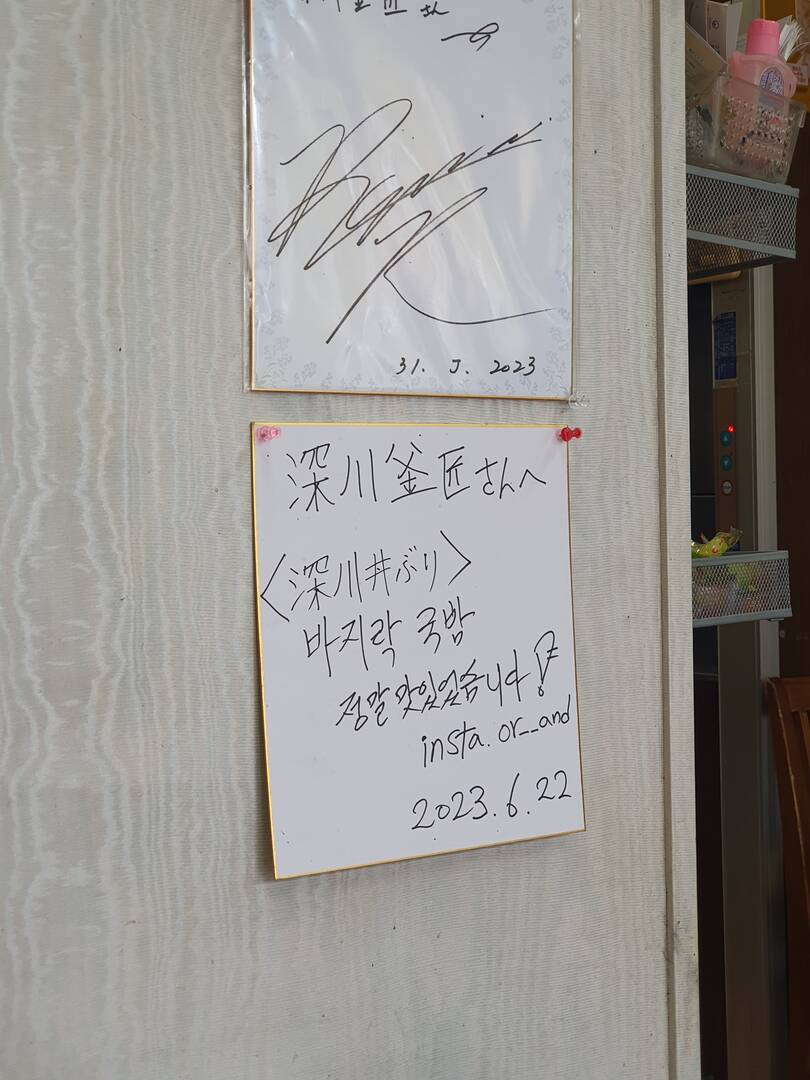 釜匠さん
へ
31. J. 2023
深川釜匠さんへ
〈深川丼ぶり〉
바지락 국밥
정말 맛있었습니다!
insta. or__and
2023.6.22